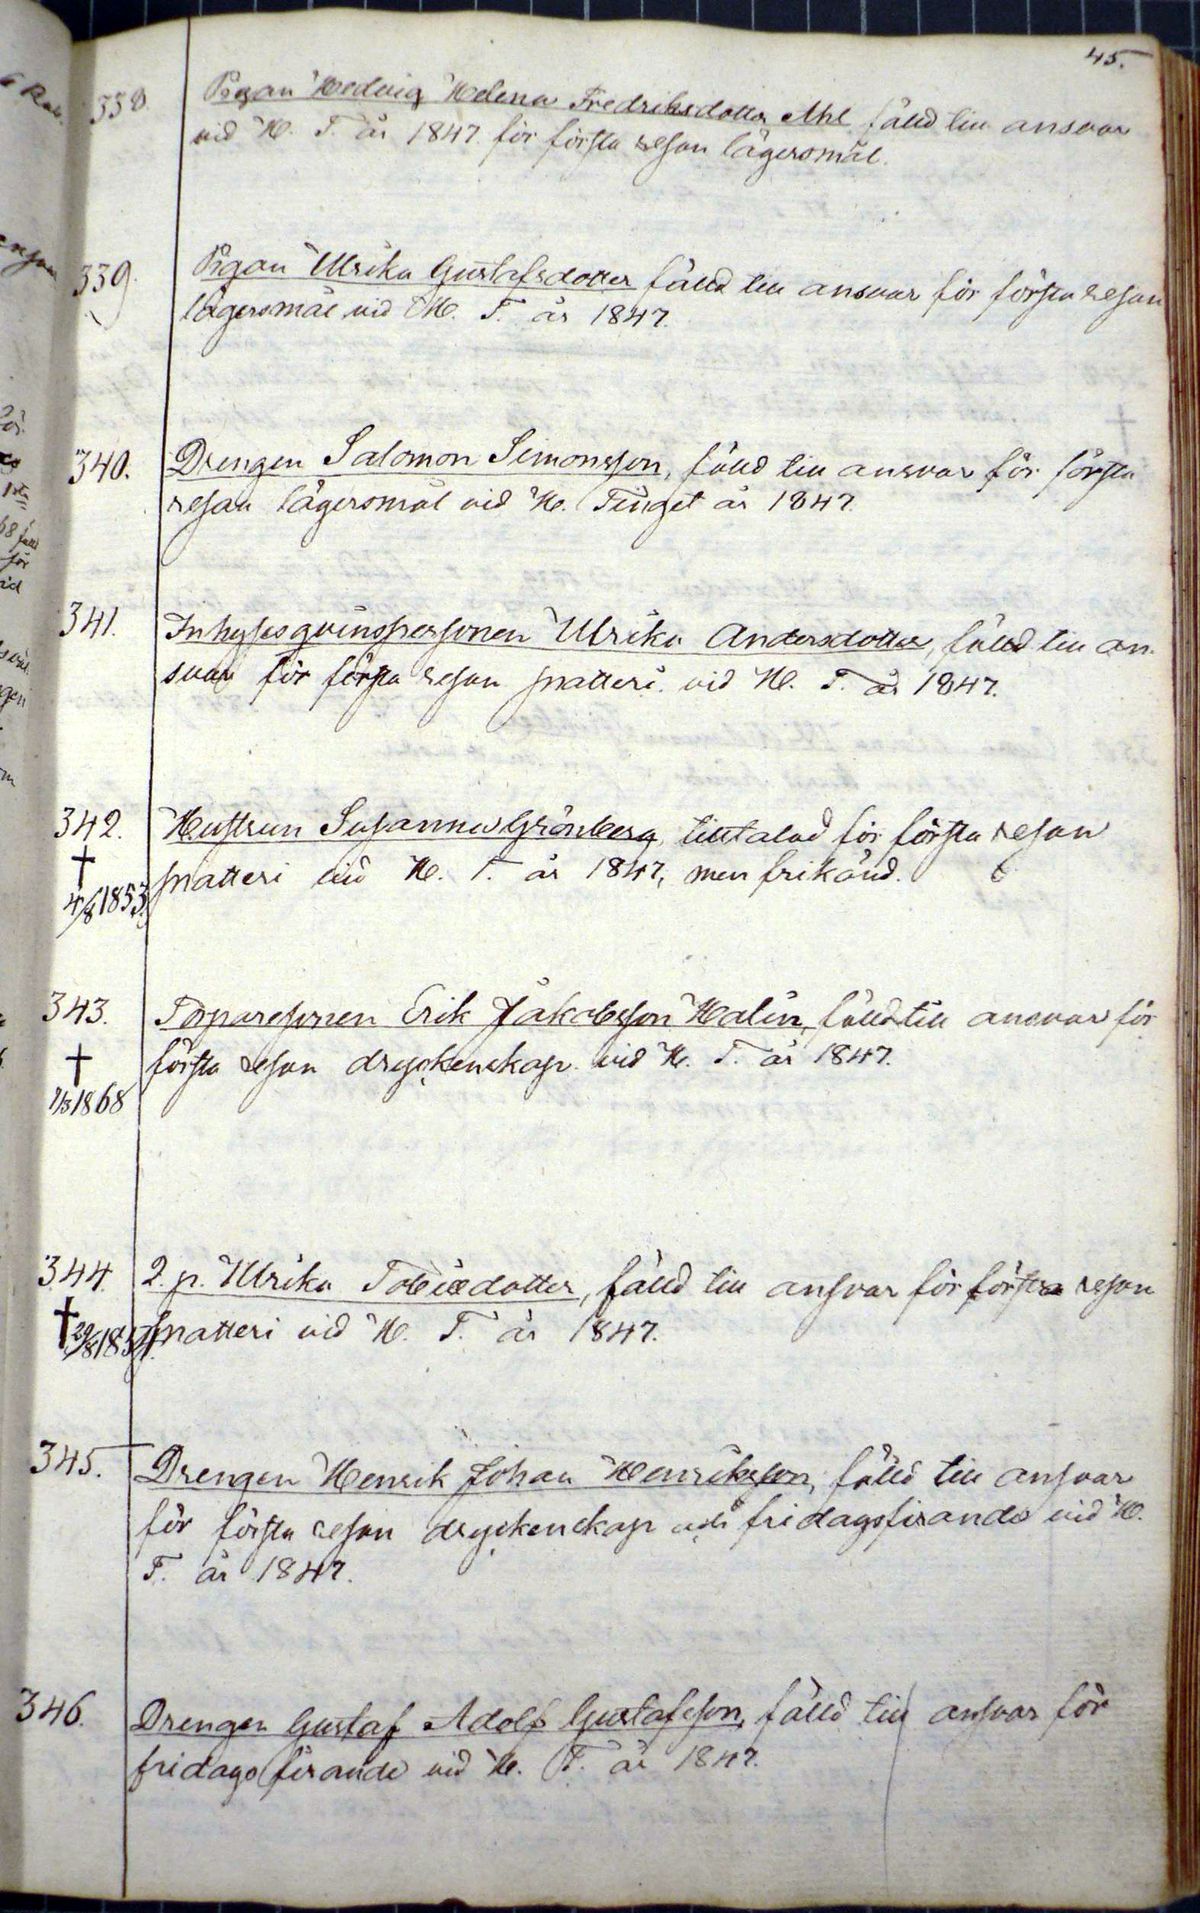 45.
338. Pigan Hedvig Helena Fredriksdotter Ahl fälld till ansvar
vid H. T. år 1847 för första resan lägersmål.
339. Pigan Ulrika Gustafsdotter fälld till ansvar för första resan
lägersmål vid H. T. år 1847.
340. Drengen Salomon Simonsson, fälld till ansvar för första
resan lägersmål vid H. Tinget år 1847.
341. Inhysesqvinspersonen Ulrika Andersdotter, fälld till an-
svar för första resan snatteri vid H. T. år 1847.
342. Hustrun Susanna Grönberg, tilltalad för första resan
† snatteri vid H. T. år 1847, men frikänd.
4/8 1853.
343. Torparesonen Erik Jakobsson Malin, fälld till ansvar för
† första resan dryckenskap vid H. T. år 1847.
1868
344. Q. p. Ulrika Tobiædotter, fälld till ansvar för första resan
† snatteri vid H. T. år 1847.
345. Drengen Henrik Johan Henriksson, fälld till ansvar
för första resan dryckenskap och fridagsfirande vid H.
T. år 1847.
346. Drengen Gustaf Adolf Gustafsson, fälld till ansvar för
fridagsfirande vid H. T. år 1847.